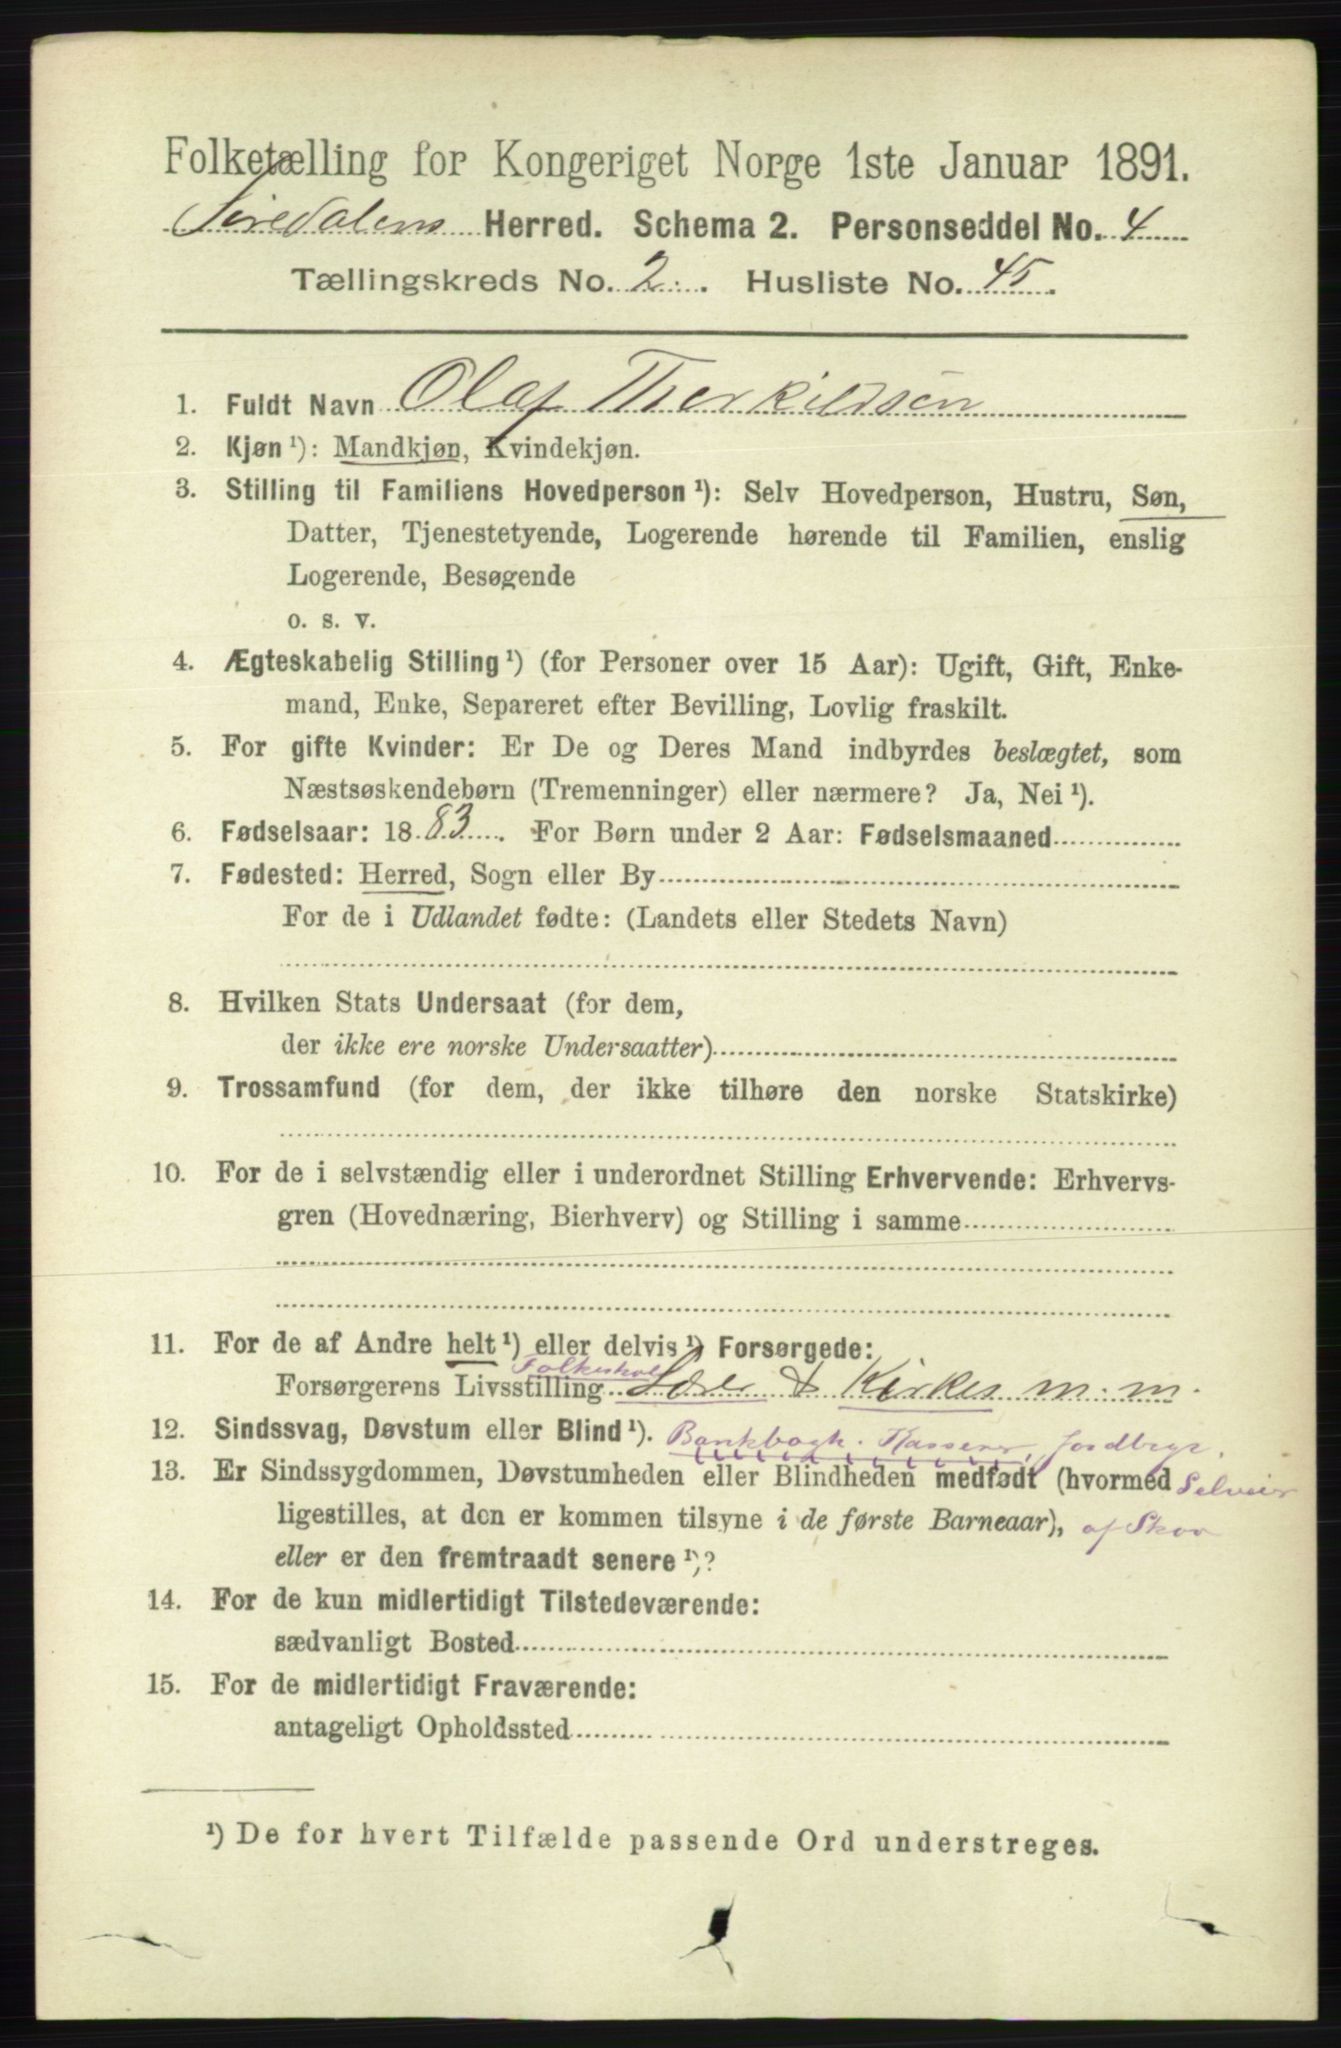 Folketælling for Kongeriget Norge 1ste Januar 1891.
Siredalens Herred. Schema 2. Personseddel No. 4
Tællingskreds No. 2. Husliste No. 45.
1. Fuldt Navn Olaf Therkildsen
2. Kjøn ¹): Mandkjøn, Kvindekjøn.
3. Stilling til Familiens Hovedperson ¹): Selv Hovedperson, Hustru, Søn,
Datter, Tjenestetyende, Logerende hørende til Familien, enslig
Logerende, Besøgende
o. s. v.
4. Ægteskabelig Stilling ¹) (for Personer over 15 Aar): Ugift, Gift, Enke-
mand, Enke, Separeret efter Bevilling, Lovlig fraskilt.
5. For gifte Kvinder: Er De og Deres Mand indbyrdes beslægtet, som
Næstsøskendebørn (Tremenninger) eller nærmere? Ja, Nei ¹).
6. Fødselsaar: 1883. For Børn under 2 Aar: Fødselsmaaned
7. Fødested: Herred, Sogn eller By
For de i Udlandet fødte: (Landets eller Stedets Navn)
8. Hvilken Stats Undersaat (for dem,
der ikke ere norske Undersaatter)
9. Trossamfund (for dem, der ikke tilhøre den norske Statskirke)
10. For de i selvstændig eller i underordnet Stilling Erhvervende: Erhvervs-
gren (Hovednæring, Bierhverv) og Stilling i samme
11. For de af Andre helt ¹) eller delvis ¹) Forsørgede:
Folkeskol
Forsørgerens Livsstilling Lærer & Kirkes m. m.
12. Sindssvag, Døvstum eller Blind ¹). Bankbogh. Kasserer, Jordbrgr.
13. Er Sindssygdommen, Døvstumheden eller Blindheden medfødt (hvormed Selveier
ligestilles, at den er kommen tilsyne i de første Barneaar), af Skov
eller er den fremtraadt senere ¹)?
14. For de kun midlertidigt Tilstedeværende:
sædvanligt Bosted
15. For de midlertidigt Fraværende:
antageligt Opholdssted
¹) De for hvert Tilfælde passende Ord understreges.